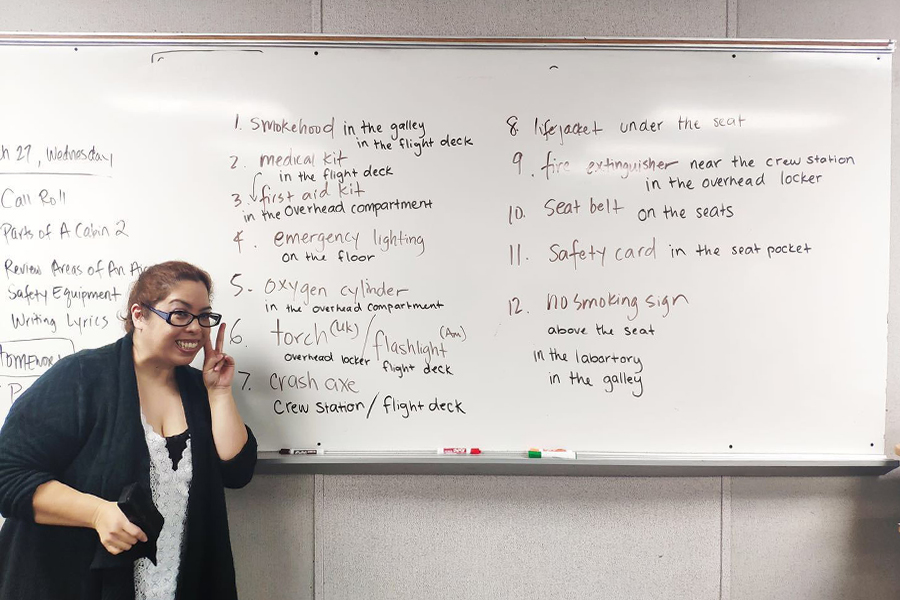 27, Wednesday
Call Roll
Parts of A Cabin 2
Review Areas of An
Safety Equipment
Writing Lyrics
1. smokehood in the galley
in the flight deck
2. medical kit
in the flight deck
3. first aid kit
in the overhead compartment
4. emergency lighting
on the floor
5. oxygen cylinder
in the overhead compartment
6. torch (UK) / flashlight (Am)
overhead locker flight deck
7. crash axe
Crew Station / flight deck
8. lifejacket under the seat
9. fire extinguisher near the crew station
in the overhead locker
10. Seat belt on the seats
11. Safety card in the seat pocket
12. no smoking sign
above the seat
in the labortory
in the galley